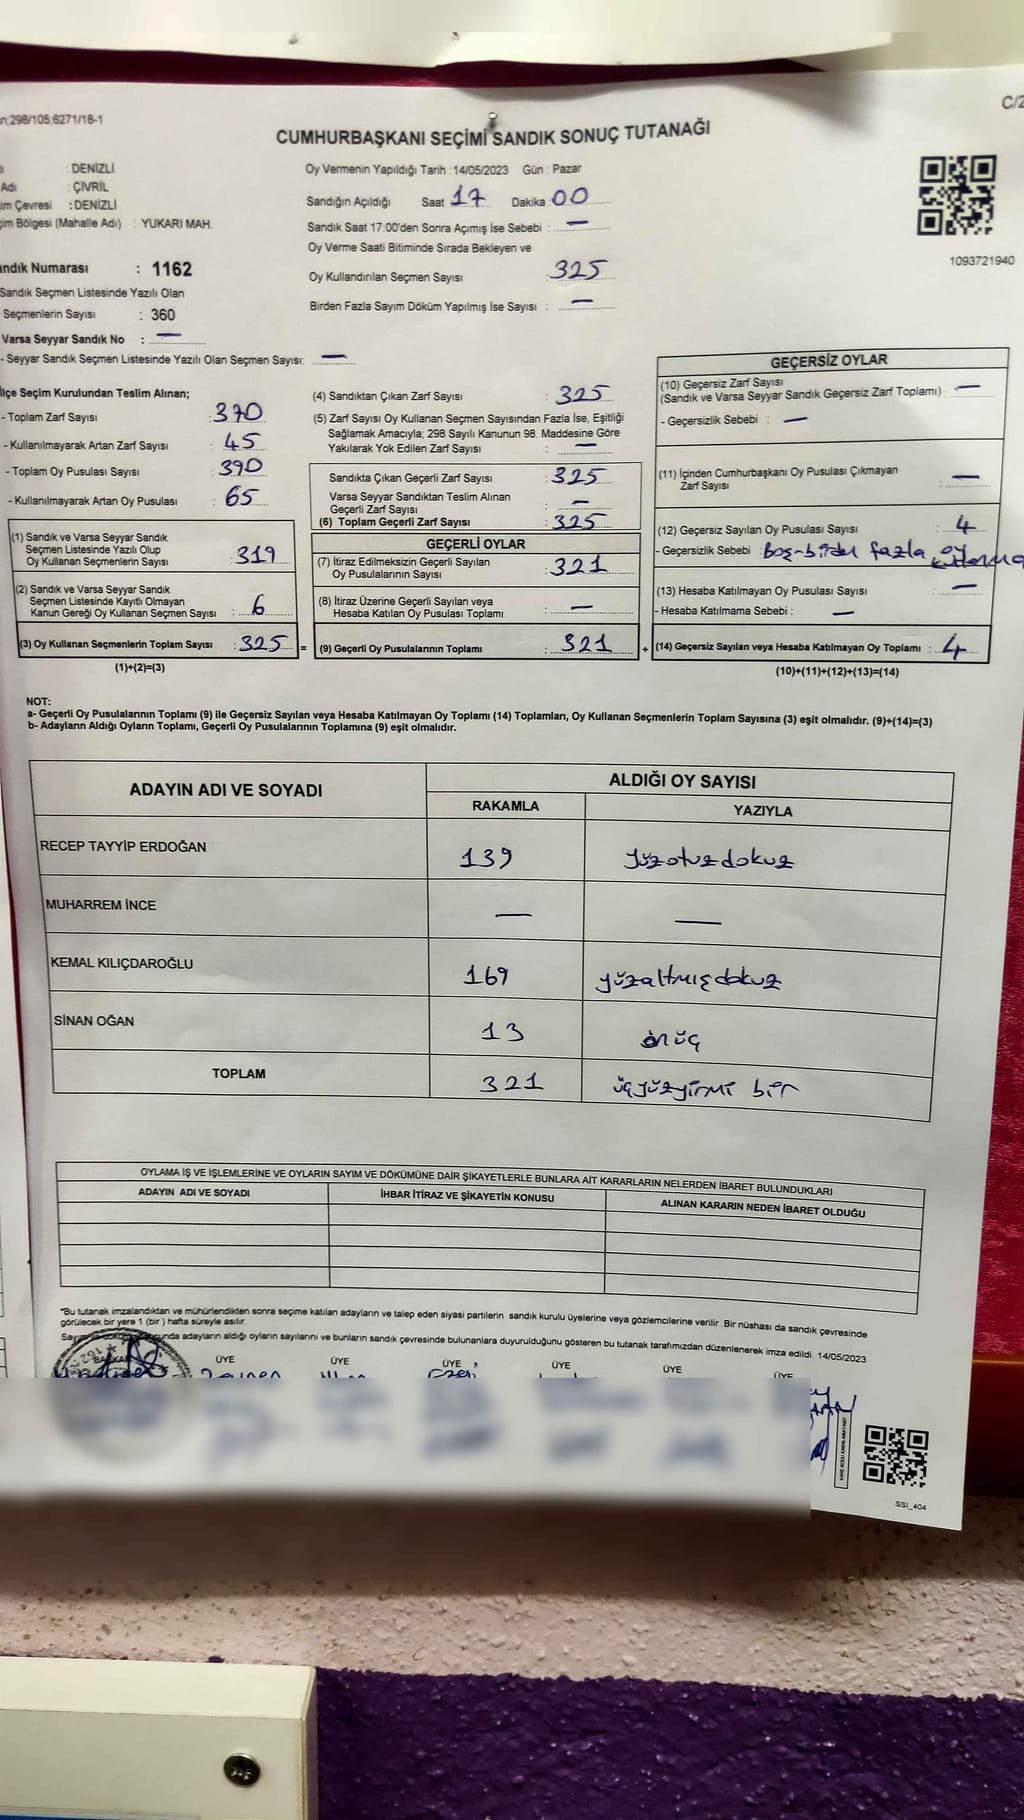 C/2
298/105;6271/18-1
CUMHURBAŞKANI SEÇİMİ SANDIK SONUÇ TUTANAĞI
: DENİZLİ
Adı : ÇİVRİL
Çevresi : DENİZLİ
Bölgesi (Mahalle Adı) : YUKARI MAH.
Sandık Numarası : 1162
Sandık Seçmen Listesinde Yazılı Olan
Seçmenlerin Sayısı : 360
Varsa Seyyar Sandık No : —
- Seyyar Sandık Seçmen Listesinde Yazılı Olan Seçmen Sayısı: —
Oy Vermenin Yapıldığı Tarih : 14/05/2023 Gün : Pazar
Sandığın Açıldığı Saat 17 Dakika : 00
Sandık Saat 17:00'den Sonra Açımış İse Sebebi : —
Oy Verme Saati Bitiminde Sırada Bekleyen ve
Oy Kullandırılan Seçmen Sayısı : 325
Birden Fazla Sayım Döküm Yapılmış İse Sayısı : —
1093721940
İlçe Seçim Kurulundan Teslim Alınan;
- Toplam Zarf Sayısı : 370
- Kullanılmayarak Artan Zarf Sayısı : 45
- Toplam Oy Pusulası Sayısı : 390
- Kullanılmayarak Artan Oy Pusulası : 65
(1) Sandık ve Varsa Seyyar Sandık
Seçmen Listesinde Yazılı Olup
Oy Kullanan Seçmenlerin Sayısı : 319
(2) Sandık ve Varsa Seyyar Sandık
Seçmen Listesinde Kayıtlı Olmayan
Kanun Gereği Oy Kullanan Seçmen Sayısı : 6
(3) Oy Kullanan Seçmenlerin Toplam Sayısı : 325 =
(1)+(2)=(3)
(4) Sandıktan Çıkan Zarf Sayısı : 325
(5) Zarf Sayısı Oy Kullanan Seçmen Sayısından Fazla İse, Eşitliği
Sağlamak Amacıyla; 298 Sayılı Kanunun 98. Maddesine Göre
Yakılarak Yok Edilen Zarf Sayısı : —
Sandıkta Çıkan Geçerli Zarf Sayısı : 325
Varsa Seyyar Sandıktan Teslim Alınan
Geçerli Zarf Sayısı : —
(6) Toplam Geçerli Zarf Sayısı : 325
GEÇERLİ OYLAR
(7) İtiraz Edilmeksizin Geçerli Sayılan
Oy Pusulalarının Sayısı : 321
(8) İtiraz Üzerine Geçerli Sayılan veya
Hesaba Katılan Oy Pusulası Toplamı : —
(9) Geçerli Oy Pusulalarının Toplamı : 321 +
GEÇERSİZ OYLAR
(10) Geçersiz Zarf Sayısı
(Sandık ve Varsa Seyyar Sandık Geçersiz Zarf Toplamı) : —
- Geçersizlik Sebebi : —
(11) İçinden Cumhurbaşkanı Oy Pusulası Çıkmayan
Zarf Sayısı : —
(12) Geçersiz Sayılan Oy Pusulası Sayısı : 4
- Geçersizlik Sebebi : Boş-birden fazla oy
(13) Hesaba Katılmayan Oy Pusulası Sayısı : —
- Hesaba Katılmama Sebebi : —
(14) Geçersiz Sayılan veya Hesaba Katılmayan Oy Toplamı : 4
(10)+(11)+(12)+(13)=(14)
NOT:
a- Geçerli Oy Pusulalarının Toplamı (9) ile Geçersiz Sayılan veya Hesaba Katılmayan Oy Toplamı (14) Toplamları, Oy Kullanan Seçmenlerin Toplam Sayısına (3) eşit olmalıdır. (9)+(14)=(3)
b- Adayların Aldığı Oyların Toplamı, Geçerli Oy Pusulalarının Toplamına (9) eşit olmalıdır.
ADAYIN ADI VE SOYADI ALDIĞI OY SAYISI
RAKAMLA YAZIYLA
RECEP TAYYİP ERDOĞAN 139 yüzotuzdokuz
MUHARREM İNCE — —
KEMAL KILIÇDAROĞLU 169 yüzaltmışdokuz
SİNAN OĞAN 13 onüç
TOPLAM 321 üçyüzyirmi bir
OYLAMA İŞ VE İŞLEMLERİNE VE OYLARIN SAYIM VE DÖKÜMÜNE DAİR ŞİKAYETLERLE BUNLARA AİT KARARLARIN NELERDEN İBARET BULUNDUKLARI
ADAYIN ADI VE SOYADI İHBAR İTİRAZ VE ŞİKAYETİN KONUSU ALINAN KARARIN NEDEN İBARET OLDUĞU
*Bu tutanak imzalandıktan ve mühürlendikten sonra seçime katılan adayların ve talep eden siyasi partilerin sandık kurulu üyelerine veya gözlemcilerine verilir. Bir nüshası da sandık çevresinde
görülecek bir yere 1 (bir) hafta süreyle asılır.
adayların aldığı oyların sayılarını ve bunların sandık çevresinde bulunanlara duyurulduğunu gösteren bu tutanak tarafımızdan düzenlenerek imza edildi. 14/05/2023
BAŞKAN ÜYE ÜYE ÜYE ÜYE ÜYE ÜYE
SSI_404